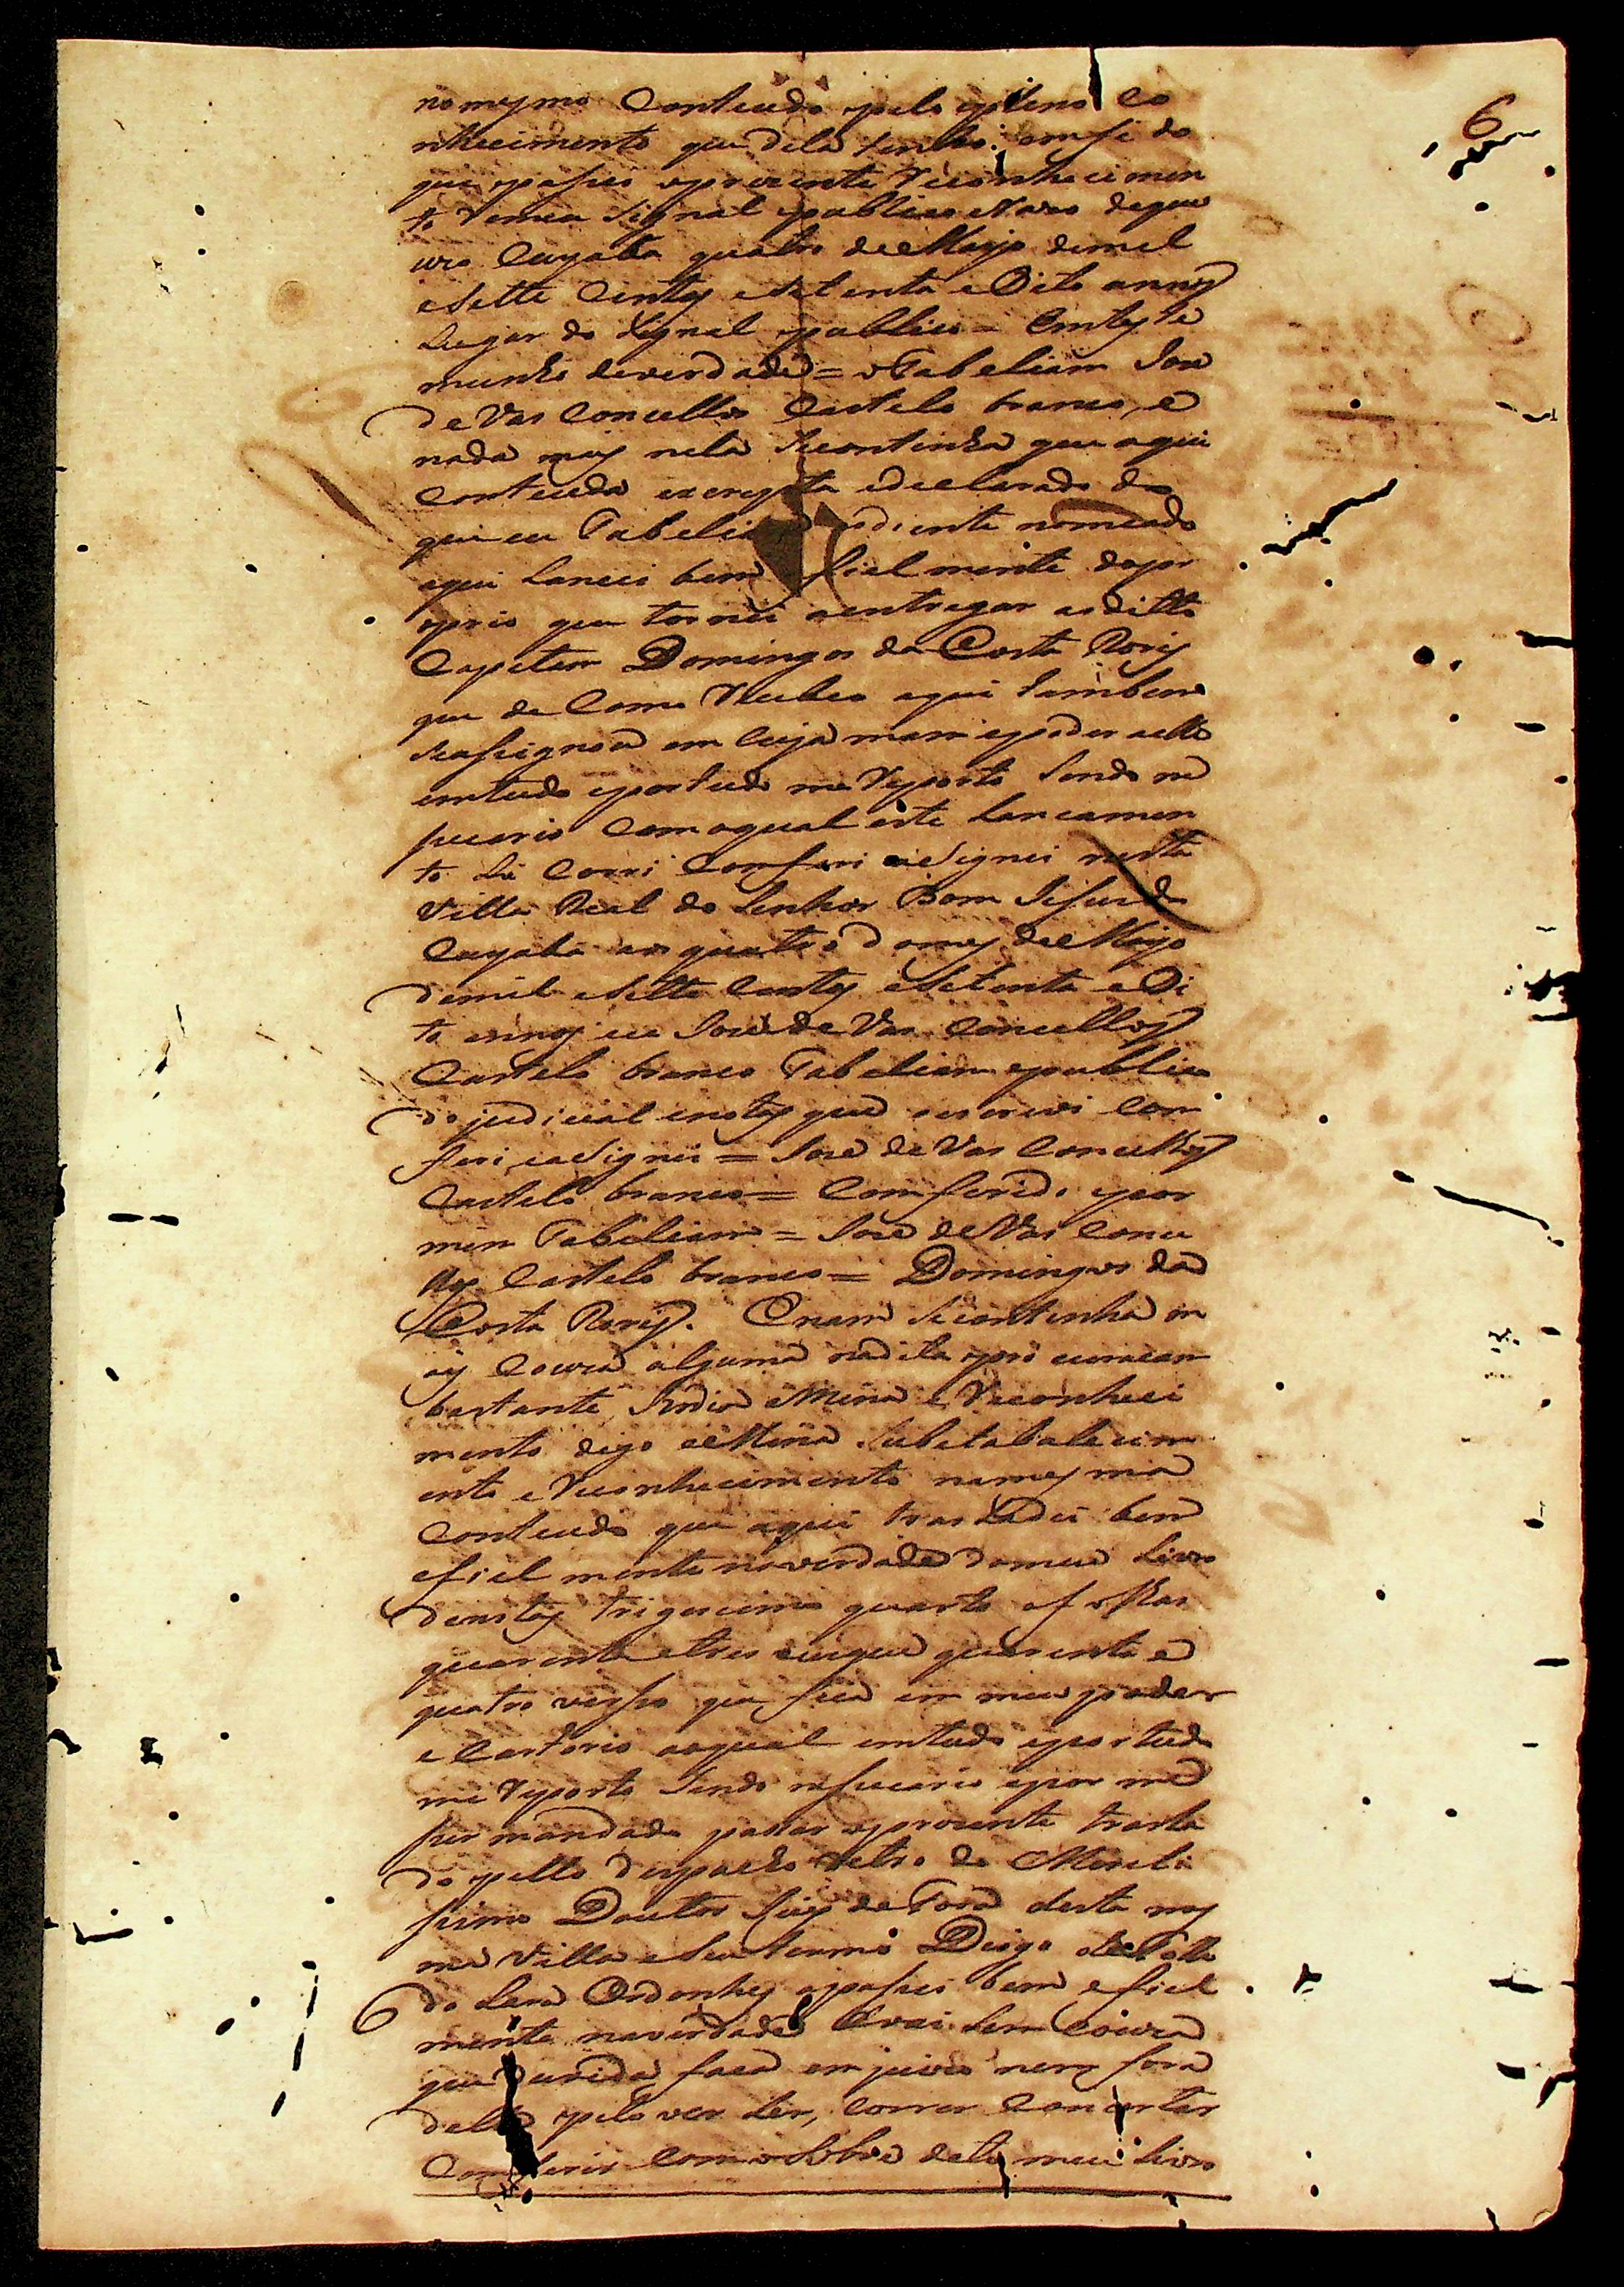 6
nomesmo Conteuda pelo pleno co
nhecimento que dela tenho: em fé do
que pasei oprezente Reconhecimen
to demeu Signal publico e Razo deque
uzo Cuyaba quatro deMayo demil
eSette Centos eSetenta e Oito annos
Lugar do Signal publico = Emteste
munho deverdade = oTabeliam Joze
deVas Concellos Castelo branco, e
nada mais nela Secontinha que aqui
Conteuda escripta edeclarado do
que eu Tabeliam adiente nomeado
aqui Lancei bem fielmente dopro
prio que tornei aentregar aoditto
Capitam Domingos da Costa Roiz
que de Como Recebeo aqui tambem
Seasignou em Cuja mam epoder aelle
emtudo eportudo me Reporto Sendo ne
secario Com oqual este Lancamen
to Li Corri Comferi eaSignei nesta
Villa Real do Senhor Bom Jesus do
Cuyaba aos quatro domes deMayo
demil eSette Centos eSetenta e Oi
to annos eu Joze de Vas Concellos
Castelo branco Tabeliam publico
do judicial enotas que oescrevi Com
feri eaSignei = Joze de Vas Concellos
Castelo branco = Comferido por
mim Tabeliam = Joze deVas Conce
llos Castelo branco = Domingos da
Costa Roiz. Enam Secontinha m
ais Couza alguma nadita procuracam
bastante e Reconheci
mento digo Subestabalecim
ento e Reconhecimento namesma
Conteudo que aqui trasladei bem
efielmente naverdade domeu Livro
denotas trigescimo quarto afolhas
quarenta etres quarenta e
quatro verso que fica em meu poder
e Cartorio aoqual emtudo eportudo
me Reporto Sendo nesecario epor me
ser mandado pasar oprezente trasla
do pello despacho retro do Mereti
ssimo Doutor Juiz de Fora desta mes
ma Villa eSeu termo Diogo deTolle
do Lara Ordonhes opasei bem efiel
mente naverdade Evai Sem Couza
que duvida faca em juizo nem fora
delle pelo ver Ler, Correr Concertar
Comferir Com meu Livro